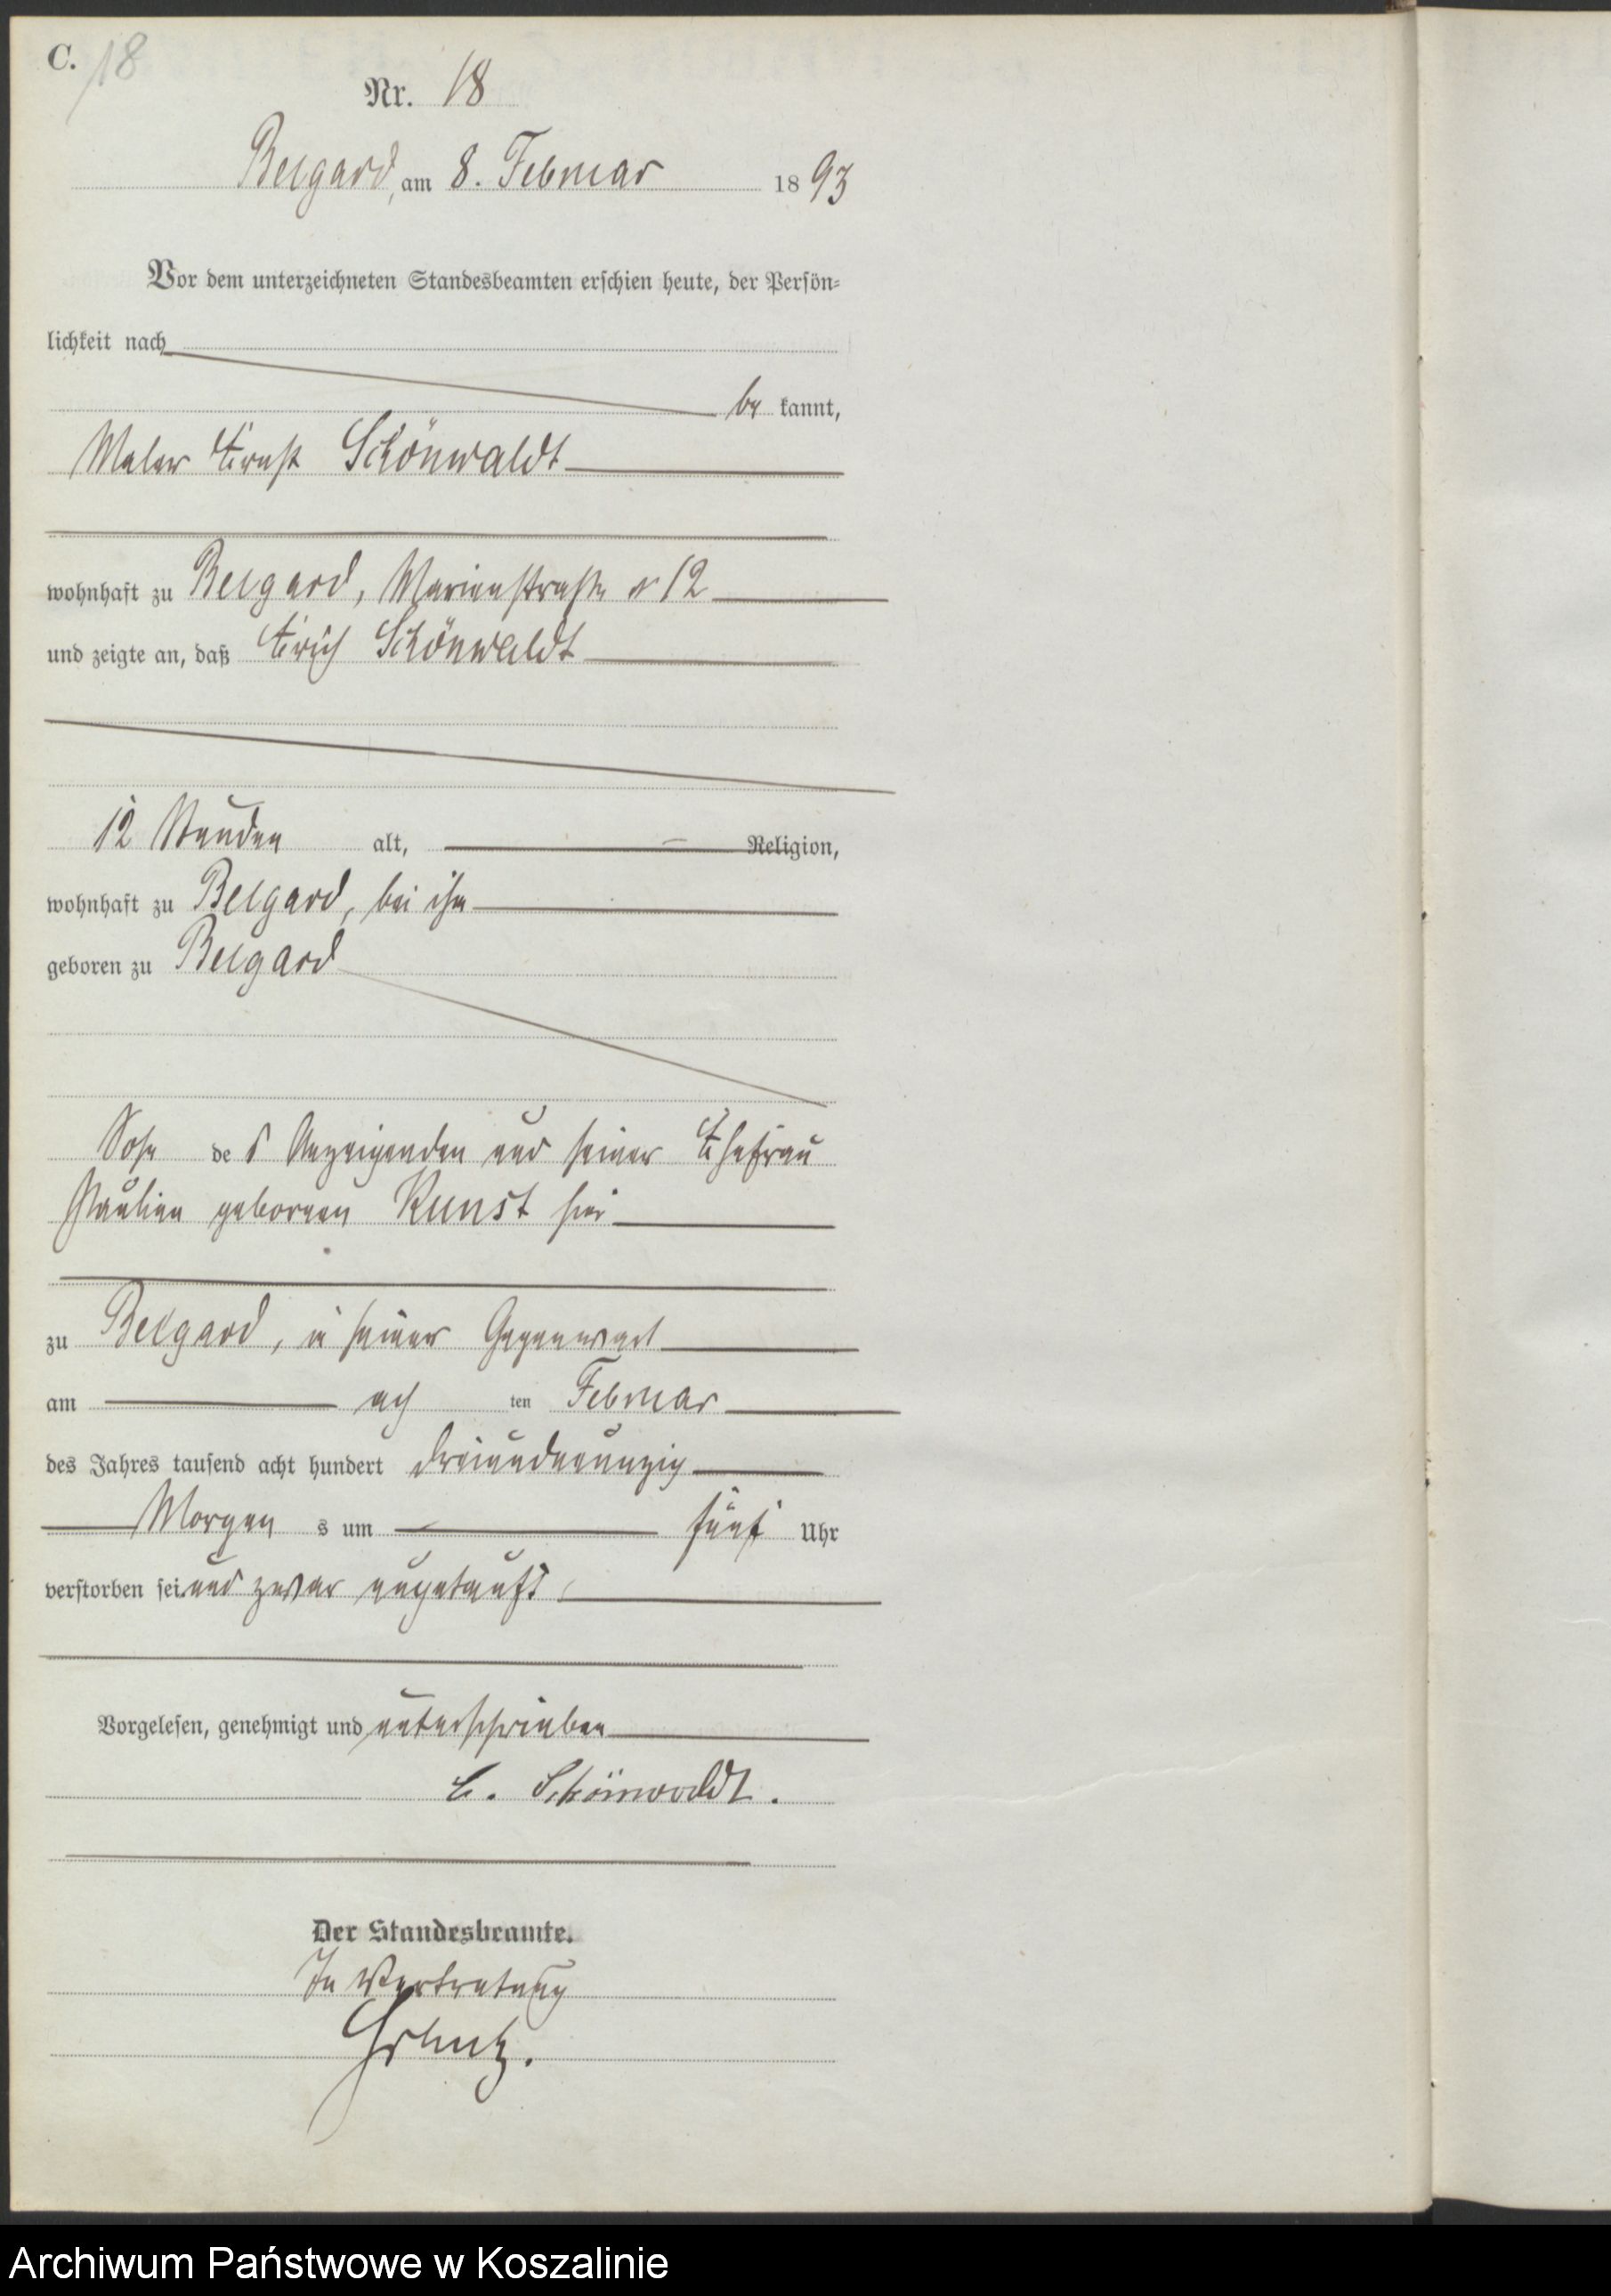 C. 18
Nr. 18
Belgard, am 8. Februar 1893
Vor dem unterzeichneten Standesbeamten erschien heute, der Persön-
lichkeit nach
be kannt,
Maler Ernst Schönwaldt
wohnhaft zu Belgard, Marienstraße № 12
und zeigte an, daß Erich Schönwaldt
12 Stunden alt, Religion,
wohnhaft zu Belgard, bei ihm
geboren zu Belgard
Sohn des Anzeigenden und seiner Ehefrau
Pauline geborenen Kunst hier
zu Belgard, in seiner Gegenwart
am ach ten Februar
des Jahres tausend acht hundert dreiundneunzig
Morgen s um fünf Uhr
verstorben sei und zwar ungetauft,
Vorgelesen, genehmigt und unterschrieben
E. Schönwaldt.
Der Standesbeamte.
In Vertretung
Archiwum Państwowe w Koszalinie